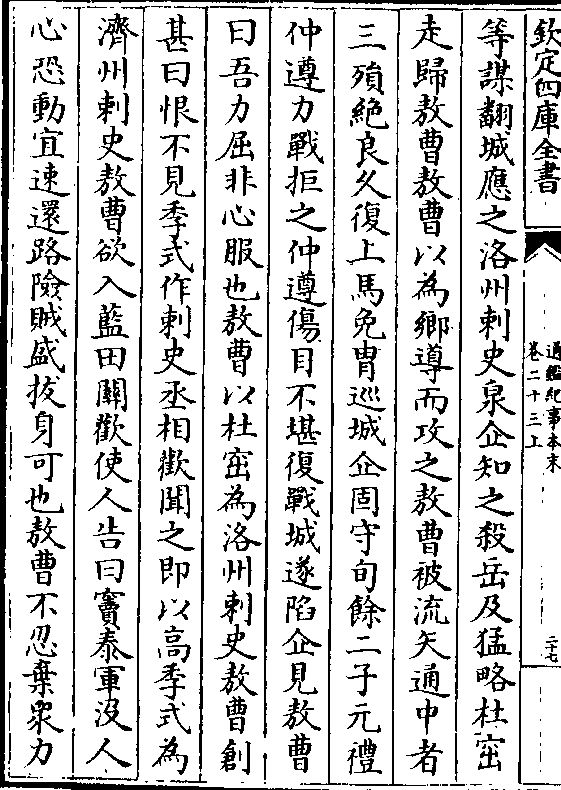 欽定四庫全書
通鑑紀事本末
卷二十三上
二十七
等謀翻城應之洛州刺史泉企知之殺岳及猛略杜窋
走歸敖曹敖曹以為鄉導而攻之敖曹被流矢通中者
三殞絶良久復上馬免胄巡城企固守旬餘二子元禮
仲遵力戰拒之仲遵傷目不堪復戰城遂陷企見敖曹
曰吾力屈非心服也敖曹以杜窋為洛州刺史敖曹創
甚曰恨不見季式作刺史丞相歡聞之即以高季式為
濟州刺史敖曹欲入藍田關歡使人告曰竇泰軍沒人
心恐動宜速還路險賊盛拔身可也敖曹不忍棄衆力